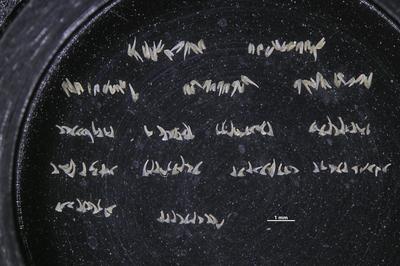 1 mm